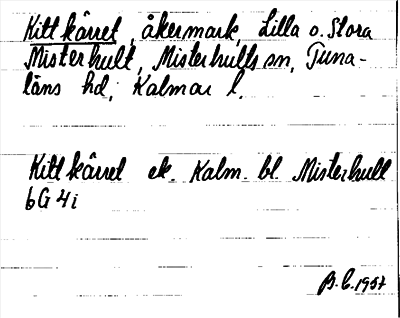 Kittkärret, åkermark, Lilla o. Stora
Misterhult, Misterhults sn, Tuna-
läns hd, Kalmar l.
Kittkärret ek. Kalm. bl. Misterhult
6G 4i
B.C. 1957